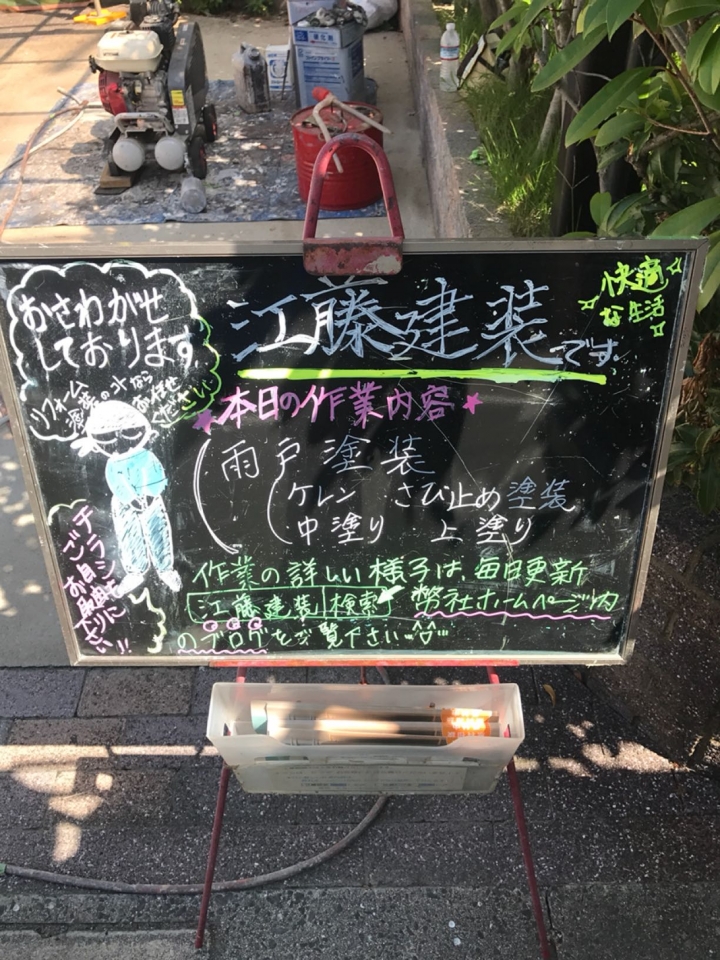 おさわがせ
しております
江藤建装です
快適
な生活
リフォーム
塗装の水なら
お任せ
ください
本日の作業内容
雨戸塗装
ケレン さび止め塗装
中塗り 上塗り
作業の詳しい様子は、毎日更新
江藤建装 検索 弊社ホームページ内
のブログをご覧下さい
チラシ
ご自由に
お取り
下さい!!